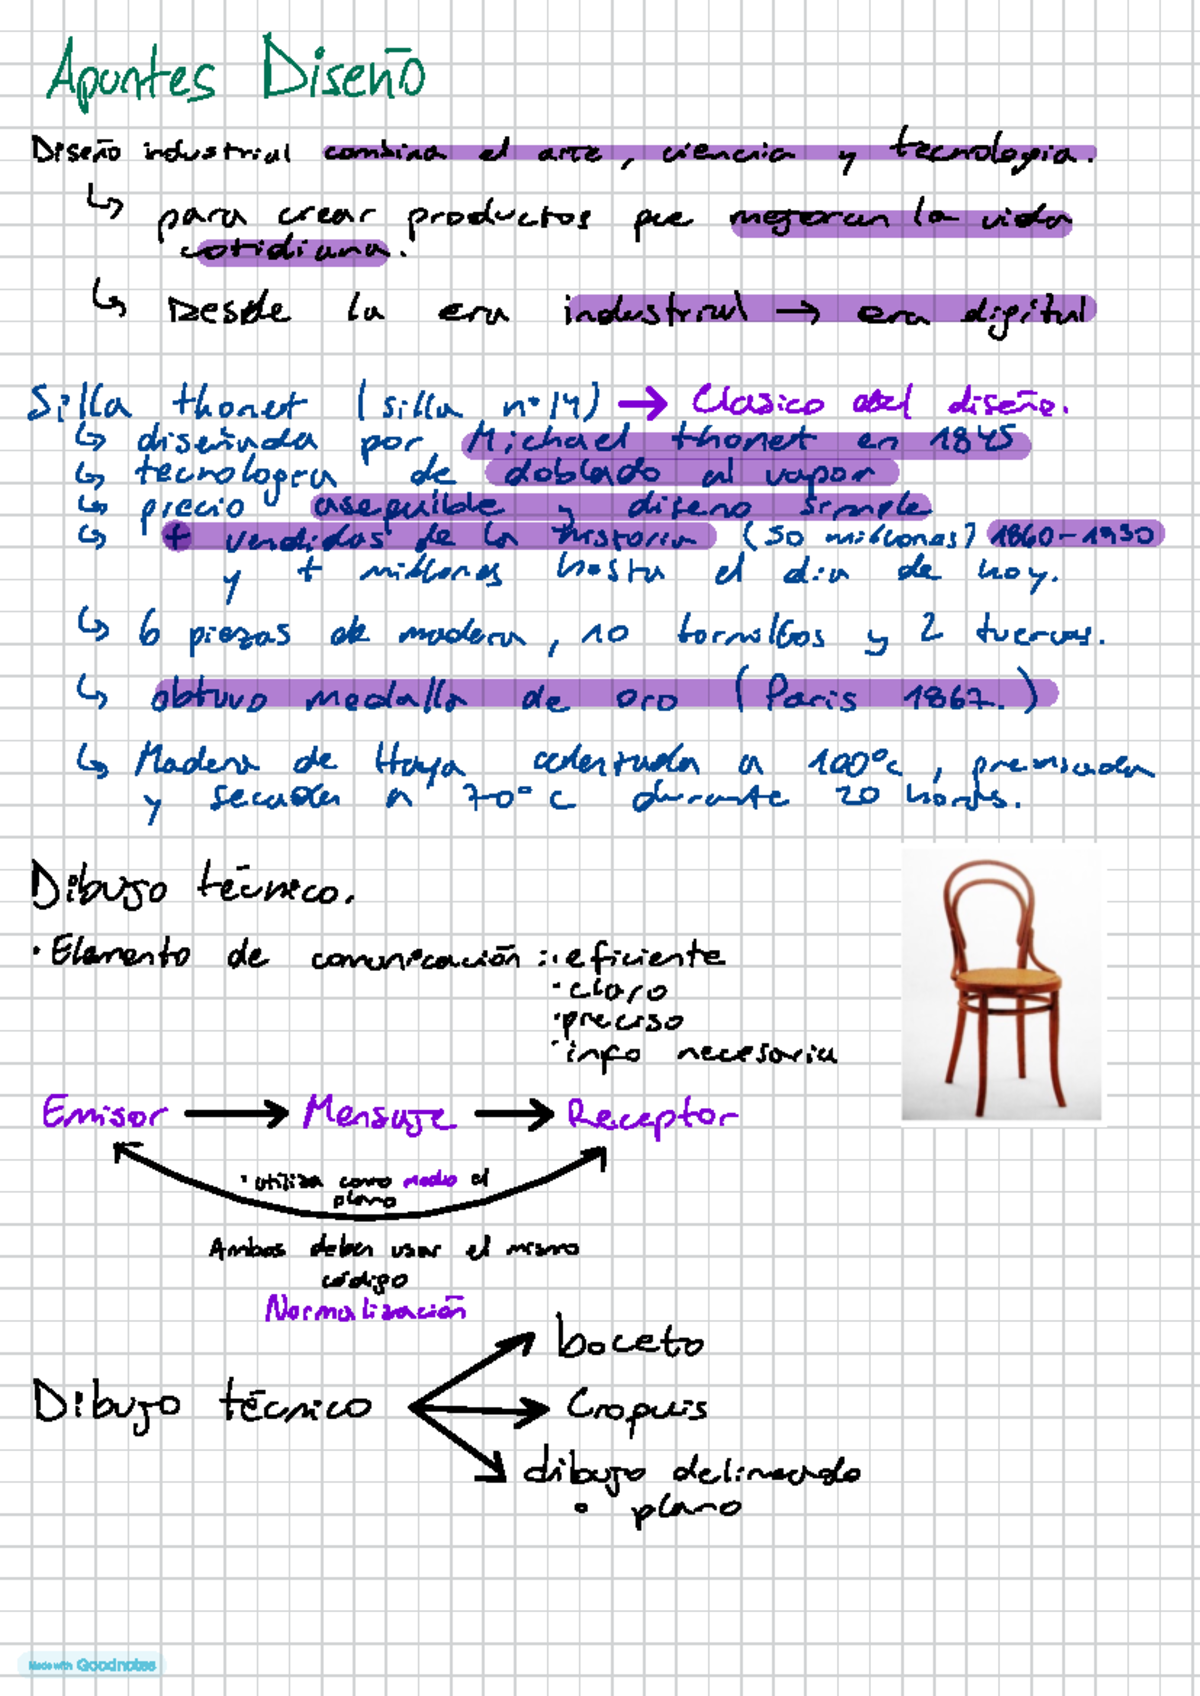 Apuntes Diseño
Diseño industrial combina el arte, ciencia y tecnologia.
↳ para crear productos que mejoran la vida
cotidiana.
↳ Desde la era industrial → era digital
Silla thonet (silla nº14) → Clasico del diseño.
↳ diseñada por Michael thonet en 1845
↳ tecnologia de doblado al vapor
↳ precio asequible y diseno simple
↳ + vendidas de la historia (50 millones) 1860-1930
y + millones hasta el dia de hoy.
↳ 6 piezas de madera, 10 tornillos y 2 tuercas.
↳ obtuvo medalla de oro (Paris 1867.)
↳ Madera de Haya calentada a 100ºc, prensada
y secada a 70ºC durante 20 horas.
Dibujo técnico.
· Elemento de comunicación : · eficiente
· claro
· preciso
· info necesaria
Emisor → Mensaje → Receptor
· utiliza como medio el
plano
Ambos deben usar el mismo
código
Normalización
boceto
Dibujo técnico Croquis
dibujo delineado
o plano
Made with Goodnotes